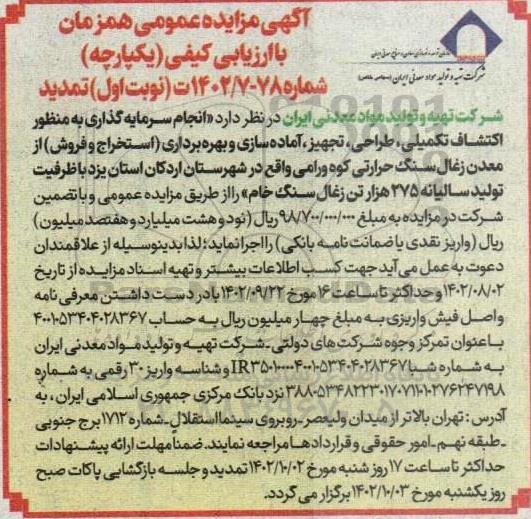 آگهی مزایده عمومی همزمان
با ارزیابی کیفی (یکپارچه)
شماره ۷۸-۱۴۰۲/۷ت (نوبت اول) تمدید
شرکت تهیه و تولید مواد معدنی ایران (سهامی خاص)
شرکت تهیه و تولید مواد معدنی ایران در نظر دارد «انجام سرمایه گذاری به منظور
اکتشاف تکمیلی، طراحی، تجهیز، آماده سازی و بهره برداری (استخراج و فروش) از
معدن زغال سنگ حرارتی کوه ورامی واقع در شهرستان اردکان استان یزد با ظرفیت
تولید سالیانه ۲۷۵ هزار تن زغال سنگ خام» را از طریق مزایده عمومی و با تضمین
شرکت در مزایده به مبلغ ۹۸/۷۰۰/۰۰۰/۰۰۰ ریال (نود و هشت میلیارد و هفتصد میلیون)
ریال (واریز نقدی یا ضمانت نامه بانکی) را اجرا نماید؛ لذا بدینوسیله از علاقمندان
دعوت به عمل می آید جهت کسب اطلاعات بیشتر و تهیه اسناد مزایده از تاریخ
۱۴۰۲/۰۸/۰۲ و حداکثر تا ساعت ۱۶ مورخ ۱۴۰۲/۰۹/۲۲ با در دست داشتن معرفی نامه
و اصل فیش واریزی به مبلغ چهار میلیون ریال به حساب ۴۰۰۱۰۵۳۴۰۴۰۲۸۳۶۷
با عنوان تمرکز وجوه شرکت های دولتی - شرکت تهیه و تولید مواد معدنی ایران
به شماره شبا IR۳۵۰۱۰۰۰۰۴۰۰۱۰۵۳۴۰۴۰۲۸۳۶۷ و شناسه واریز ۳۰ رقمی به شماره
۳۸۸۰۵۳۴۸۲۲۳۰۱۷۰۷۱۱۰۱۰۲۷۶۲۴۷۱۹۸ نزد بانک مرکزی جمهوری اسلامی ایران، به
آدرس: تهران بالاتر از میدان ولیعصر - روبروی سینما استقلال - شماره ۱۷۱۲ برج جنوبی
- طبقه نهم - امور حقوقی و قراردادها مراجعه نمایند. ضمنا مهلت ارائه پیشنهادات
حداکثر تا ساعت ۱۷ روز شنبه مورخ ۱۴۰۲/۱۰/۰۲ تمدید و جلسه بازگشایی پاکات صبح
روز یکشنبه مورخ ۱۴۰۲/۱۰/۰۳ برگزار می گردد.